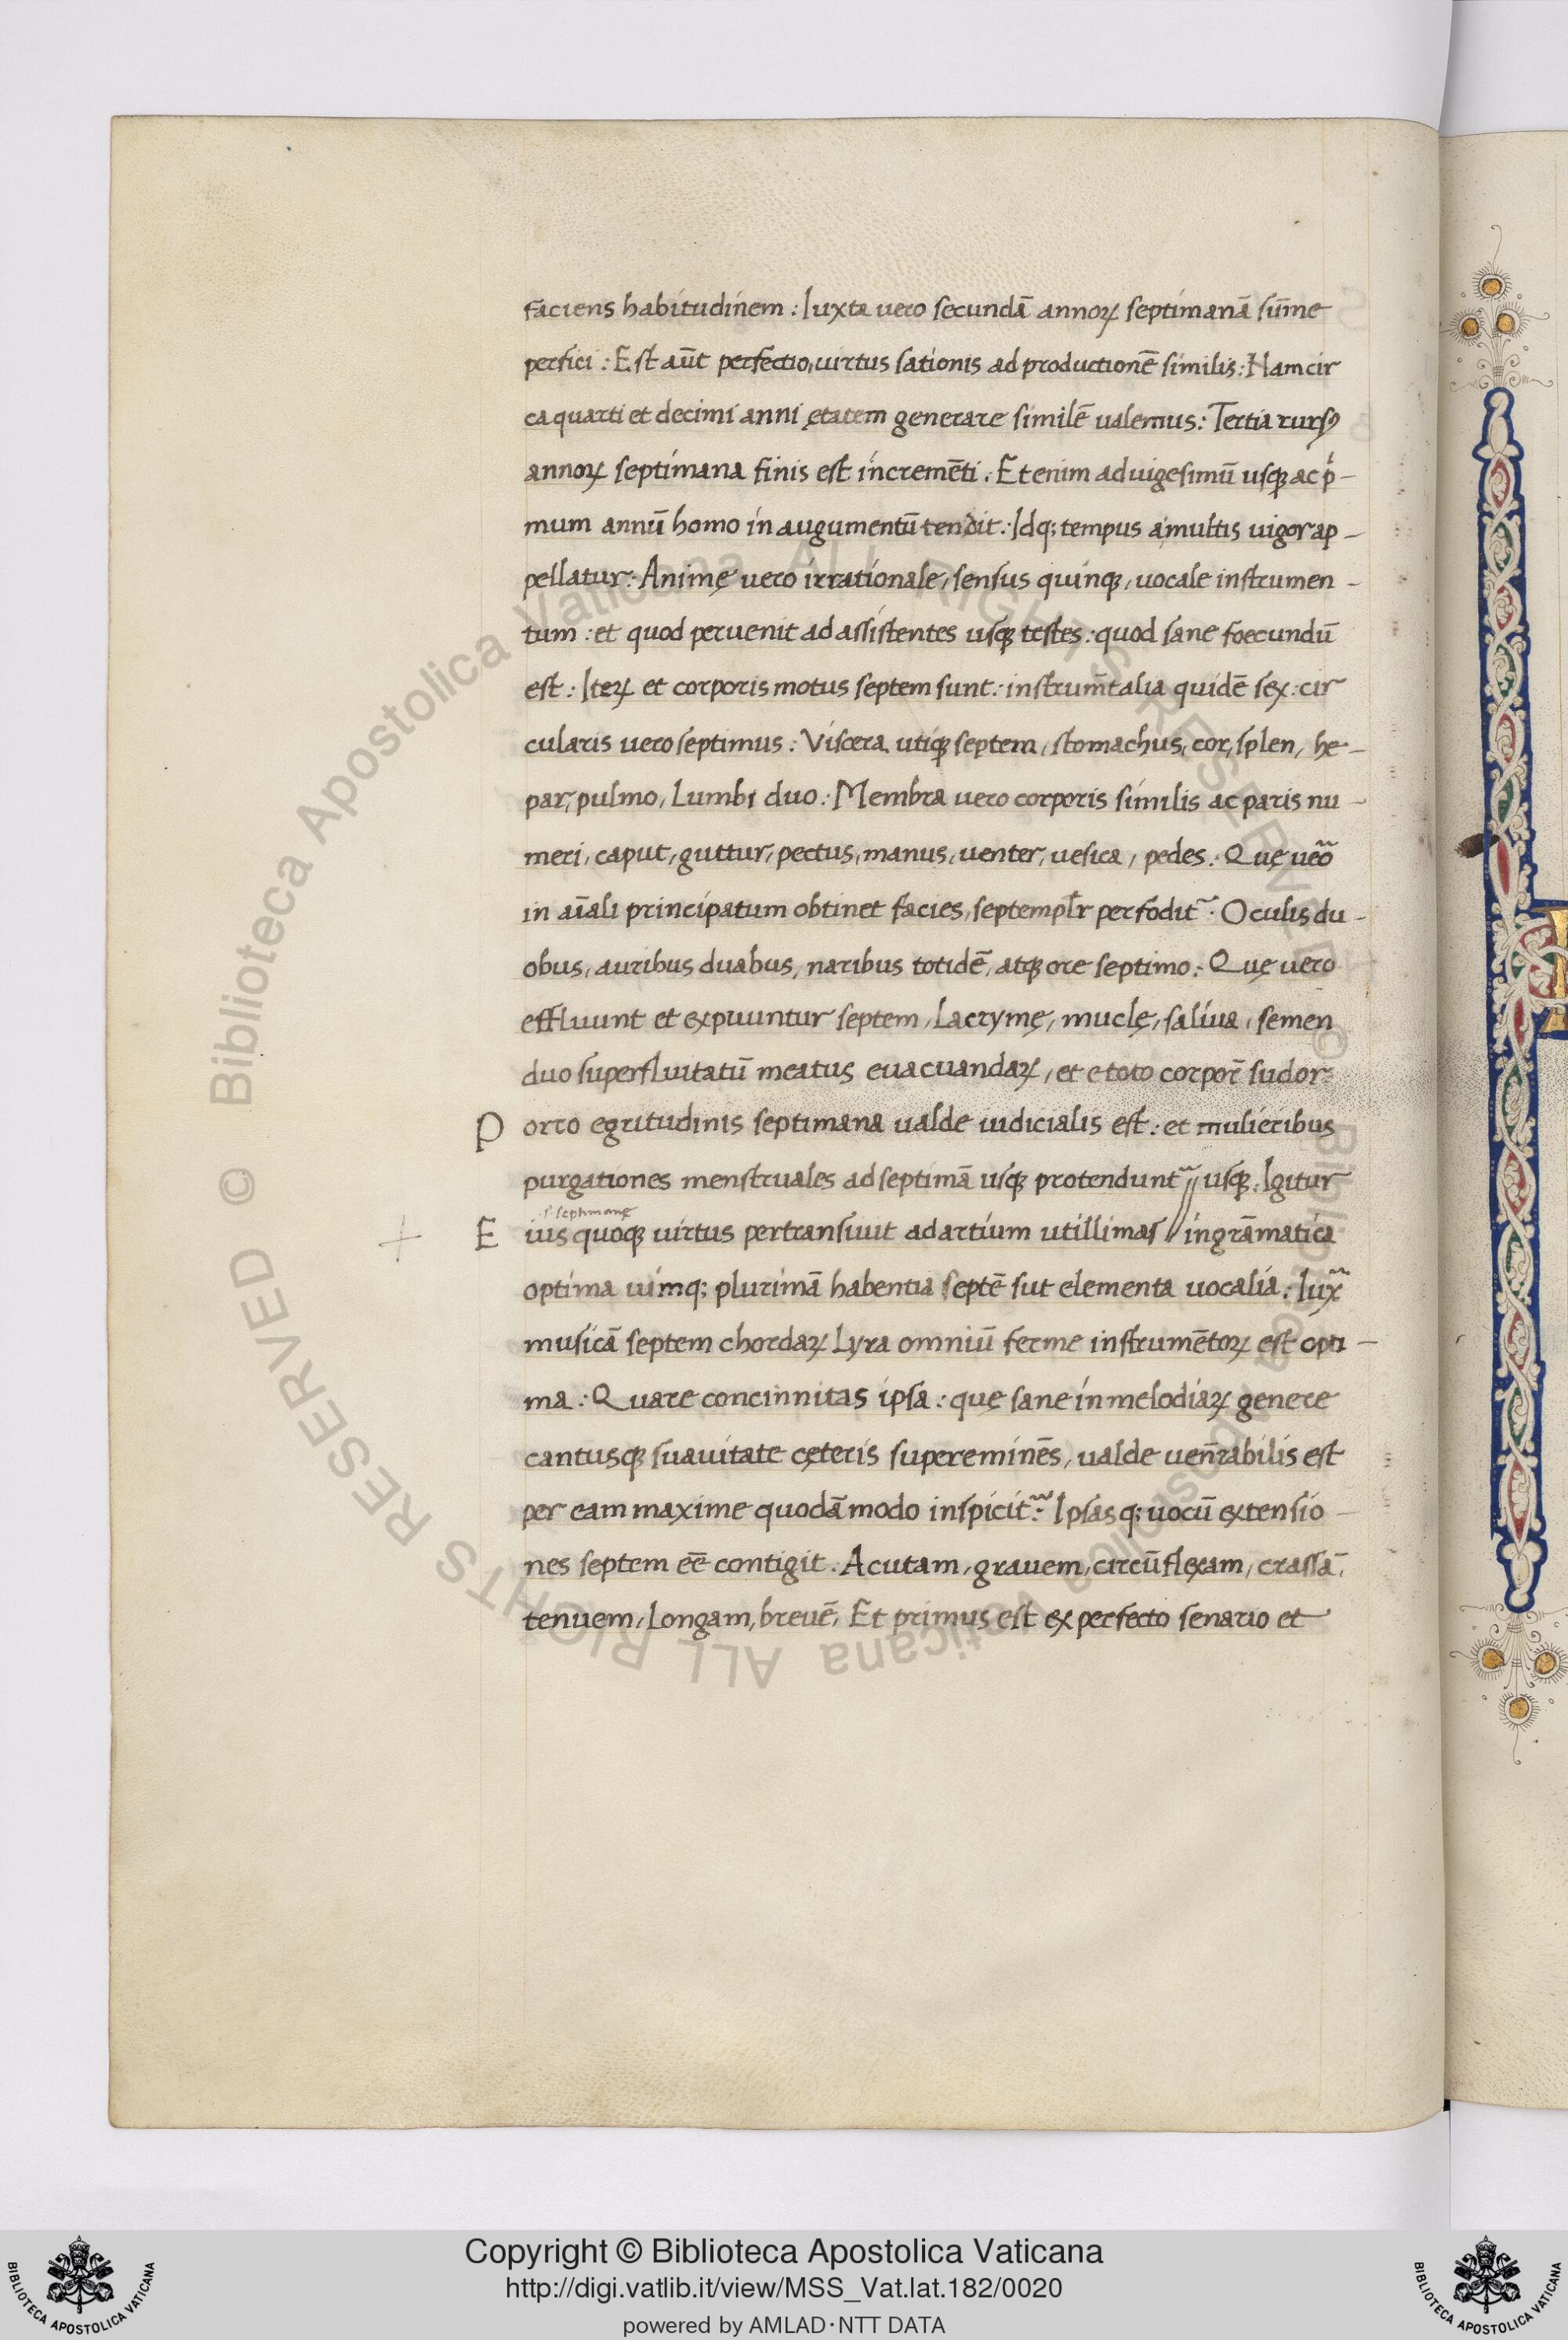 faciens habitudinem : Iuxta uero secundā annoꝝ septimanā sūme
perfici : Est aūt perfectio, uirtus sationis ad productionē similis : Nam cir
ca quarti et decimi anni ętatem generare similē ualemus : Tertia rursꝰ
annoꝝ septimana finis est incremēti . Etenim ad uigesimū usqꝫ ac pͥ-
mum annū homo in augumentū tendit : Idq; tempus a multis uigor ap-
pellatur : Animę uero irrationale, sensus quinqꝫ, uocale instrumen-
tum : et quod peruenit ad assistentes usqꝫ testes : quod sane foecundū
est : Iteꝝ et corporis motus septem sunt : instrum̄talia quidē sex : cir
cularis uero septimus : Viscera utiqꝫ septem, stomachus, cor, splen, he-
par, pulmo, Lumbi duo : Membra uero corporis similis ac paris nu-
meri, caput, guttur, pectus, manus, uenter, uesica, pedes : Quę ueõ
in aīali principatum obtinet facies, septempl̄r perfodit᷑ . Oculis du-
obus, auribus duabus, naribus totidē, atqꝫ ore septimo : Quę uero
effluunt et expuuntur septem, Lacrymę, muclę, saliua, semen
duo superfluitatū meatus euacuandaꝝ, et e toto corpor̄ sudor :
Porro egritudinis septimana ualde iudicialis est : et mulieribus
purgationes menstruales ad septimā usqꝫ protendunt᷑ // usqꝫ . Igitur
s. septimanę
Eius quoqꝫ uirtus pertransiuit ad artium utillimas // in grāmatica
optima uimq; plurimā habentia septē sut elementa uocalia : Iux᷑
musicā septem chordaꝝ Lyra omniū ferme instrumētoꝝ est opti-
ma : Quare concinnitas ipsa : quę sane in melodiaꝝ genere
cantusqꝫ suauitate cęteris supereminēs, ualde uen̄rabilis est
per eam maxime quodāmodo inspicit᷑ : Ipsas q; uocū extensio-
nes septem eē contigit . Acutam, grauem, circūflexam, crassā,
tenuem, Longam, breuē, Et primus est ex perfecto senario et
Copyright © Biblioteca Apostolica Vaticana
http://digi.vatlib.it/view/MSS_Vat.lat.182/0020
powered by AMLAD·NTT DATA
BIBLIOTECA APOSTOLICA VATICANA
BIBLIOTECA APOSTOLICA VATICANA
© Biblioteca Apostolica Vaticana ALL RIGHTS RESERVED © Biblioteca Apostolica Vaticana ALL RIGHTS RESERVED